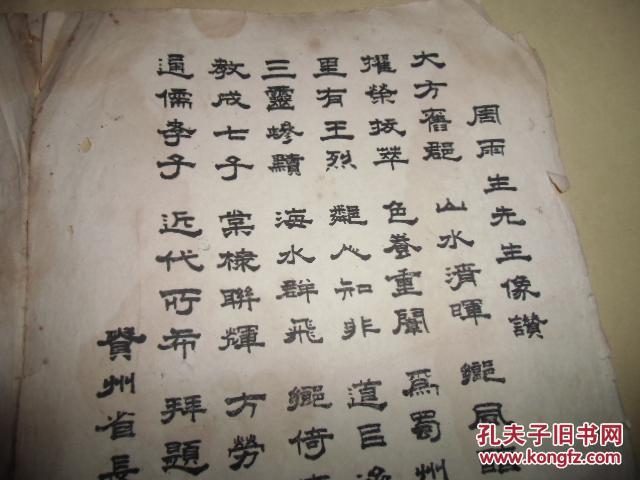 周雨生先生像讚
大方舊郡 山水清暉 鄉風
擢榮拔萃 色養重闈 爲蜀州
里有王烈 人知非 道巨
三靈墋黷 海水群飛 鄉倚
教成七子 棠棣聯輝 方勞
通儒孝子 近代所希 拜題
貴州省長
孔夫子旧书网
www.kongfz.com